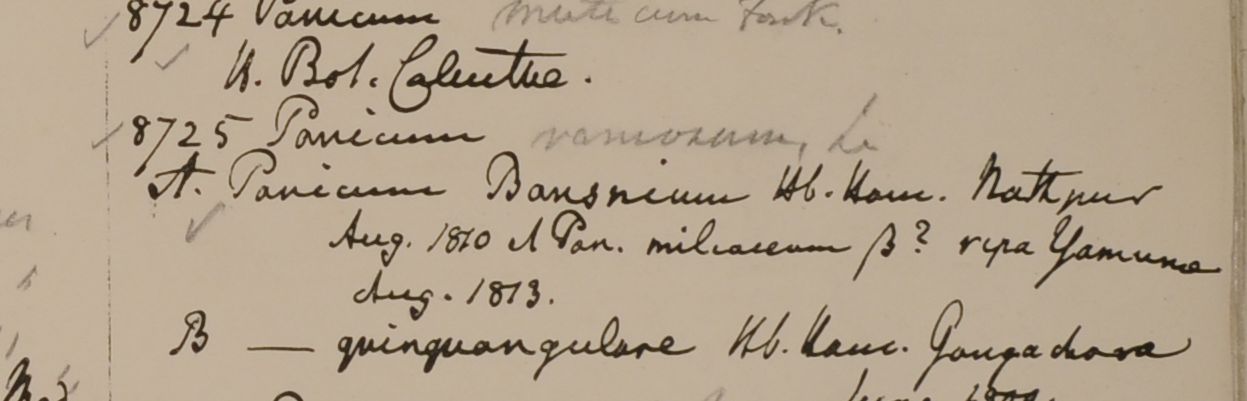 8724 Panicum muticum Forsk.
H. Bot. Calcutta.
8725 Panicum ramosum, Li
A. Panicum Bansnium Hb. Ham. Nathpur
Aug. 1810 et Pan. miliaceum β? ripa Yamuna
Aug. 1813.
B — quinquangulare Hb. Ham. Gongachora